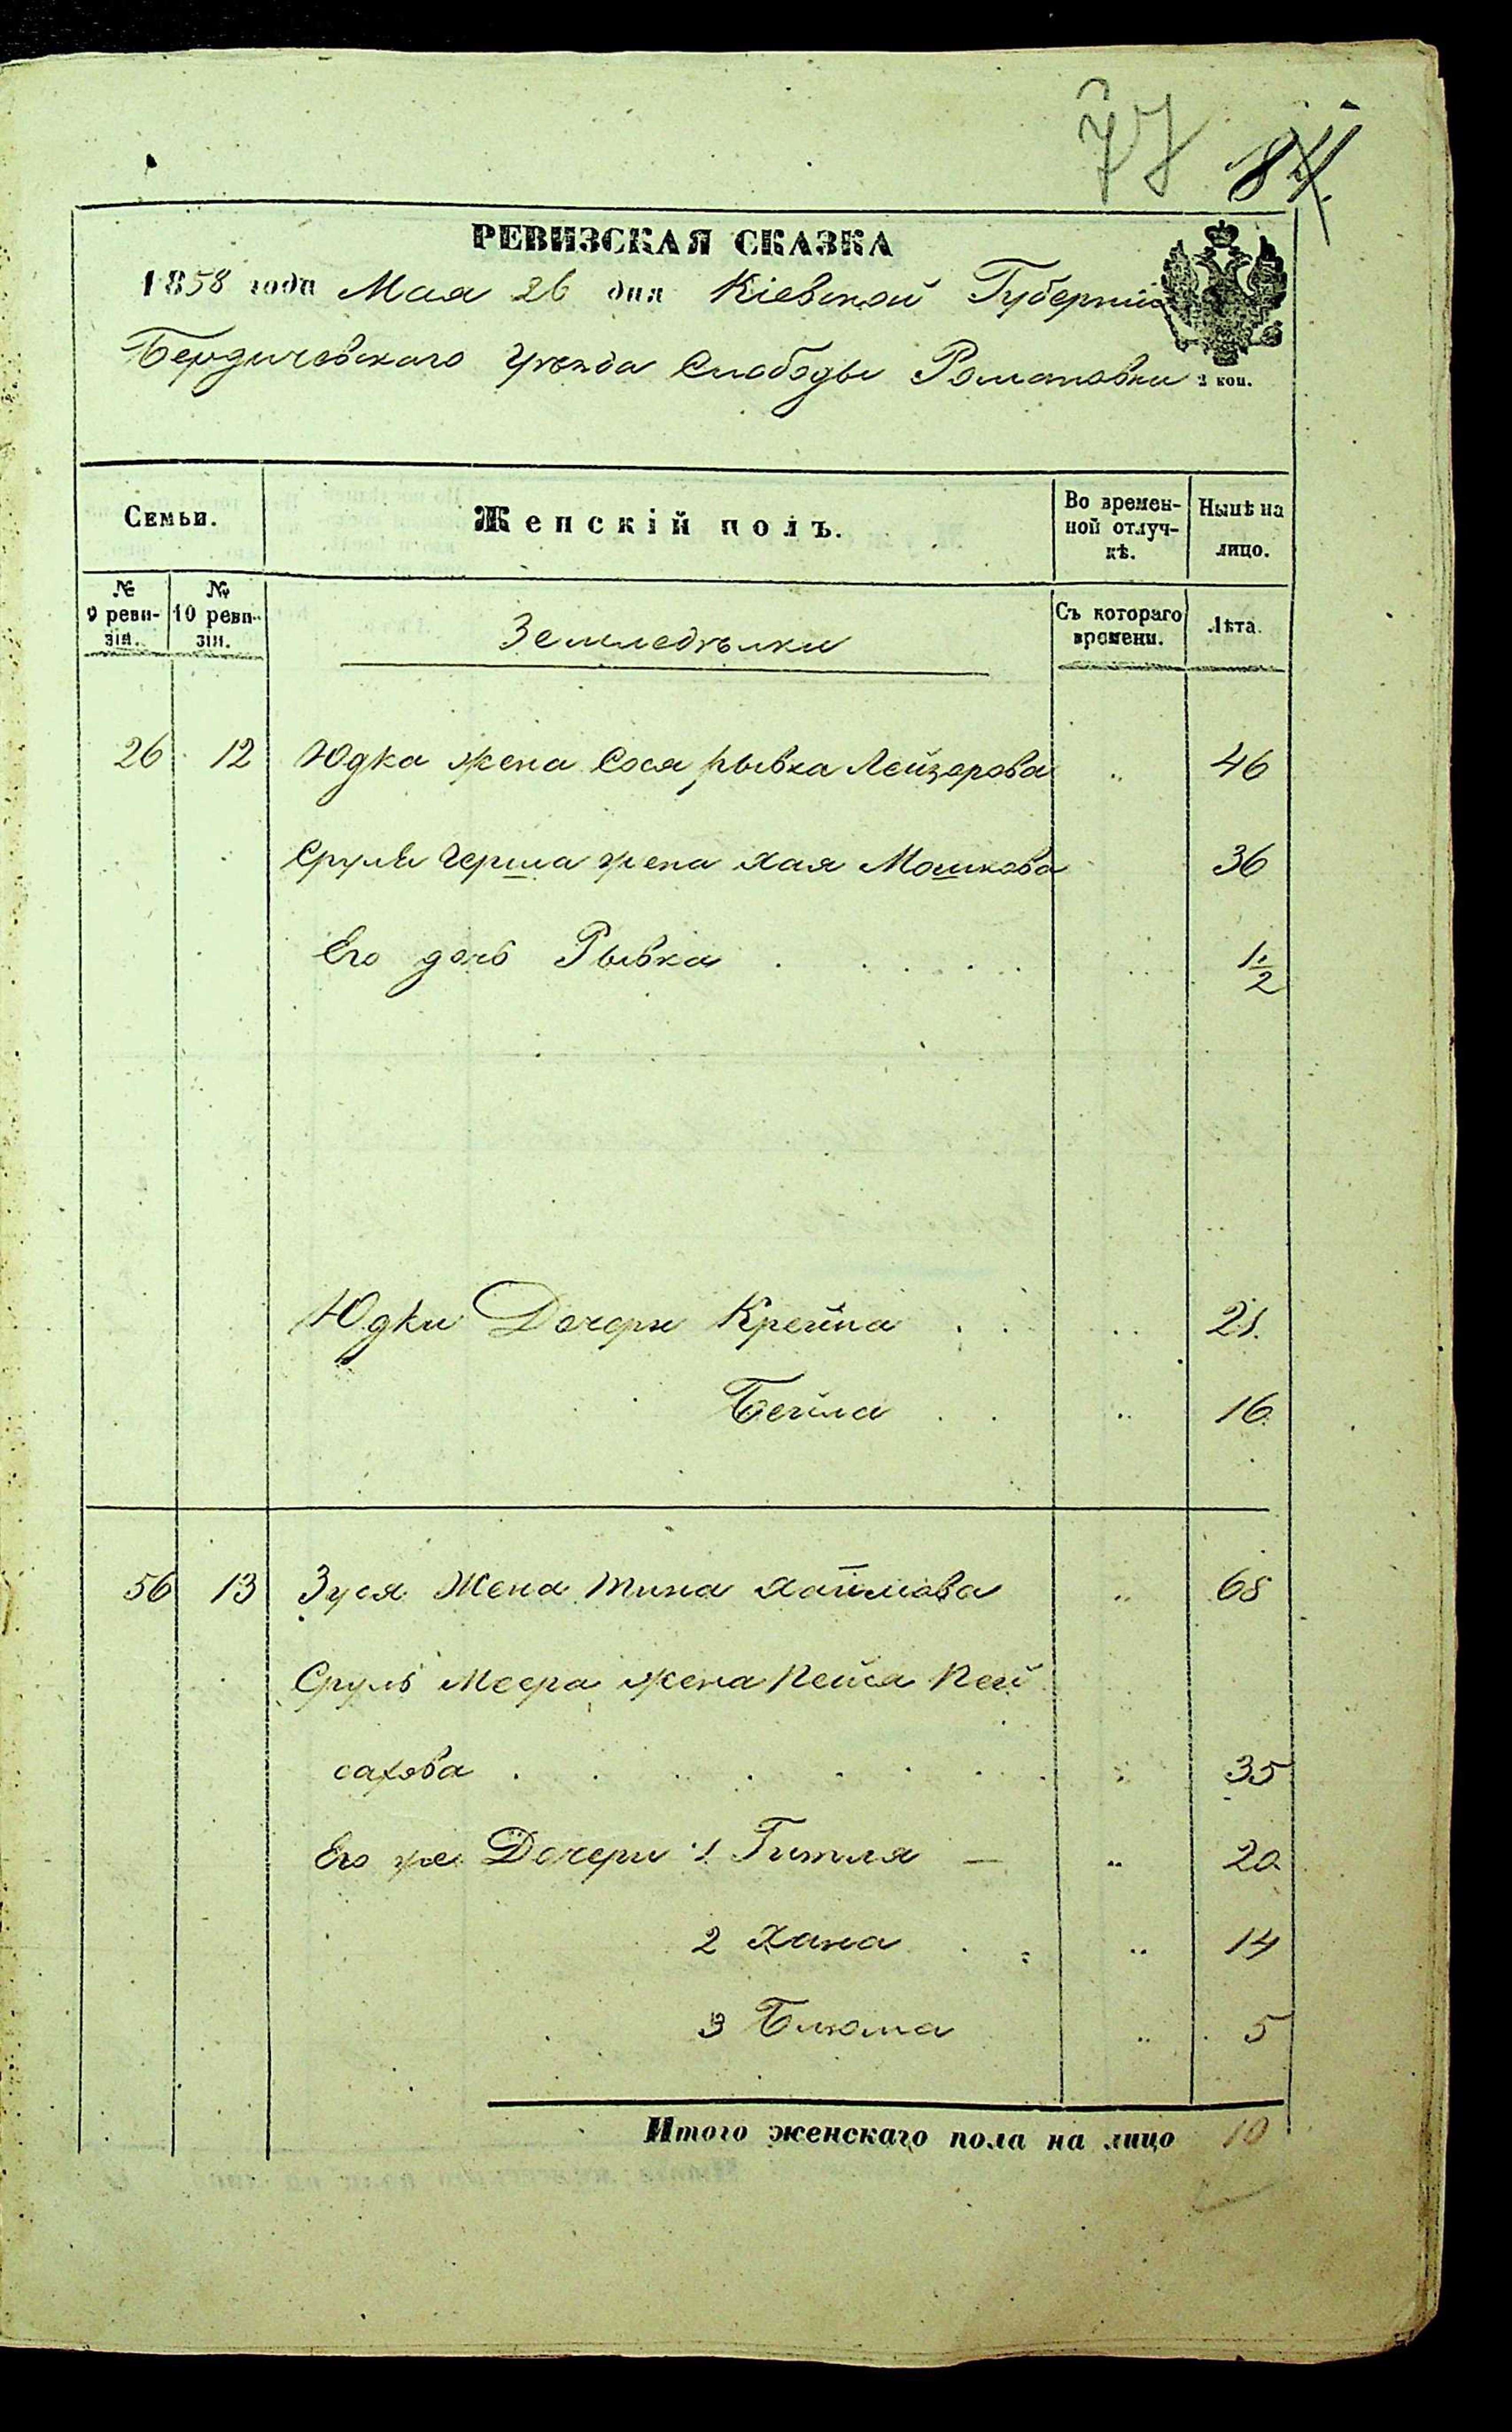 77 84.
РЕВИЗСКАЯ СКАЗКА
1858 года Мая 26 дня Кіевской Губерніи
Бердичевскаго Уѣзда Слободы Романовки
2 коп.
Семьи.
Женскій полъ.
Во времен-
ной отлуч-
кѣ.
Нынѣ на
лицо.
№
9 реви-
зіи.
№
10 реви-
зіи.
Земледѣлки
Съ котораго
времени.
Лѣта.
26 12 Юдка жена Сося Рывка Лейзерова " 46
Сруль Герша жена Хая Мошкова 36
Его дочь Рывка . . . . . " 1 1/2
Юдки Дочери Крейна . . " 21.
Бейла . . " 16.
56 13 Зуся Жена Тина Хаймова " 68
Сруль Меера жена Пейса Пей
сахова . . . . . . . . " 35
Его же Дочери 1 Гитля — " 20
2 Хана . . " 14
3 Блюма " 5
Итого женскаго пола на лицо 10